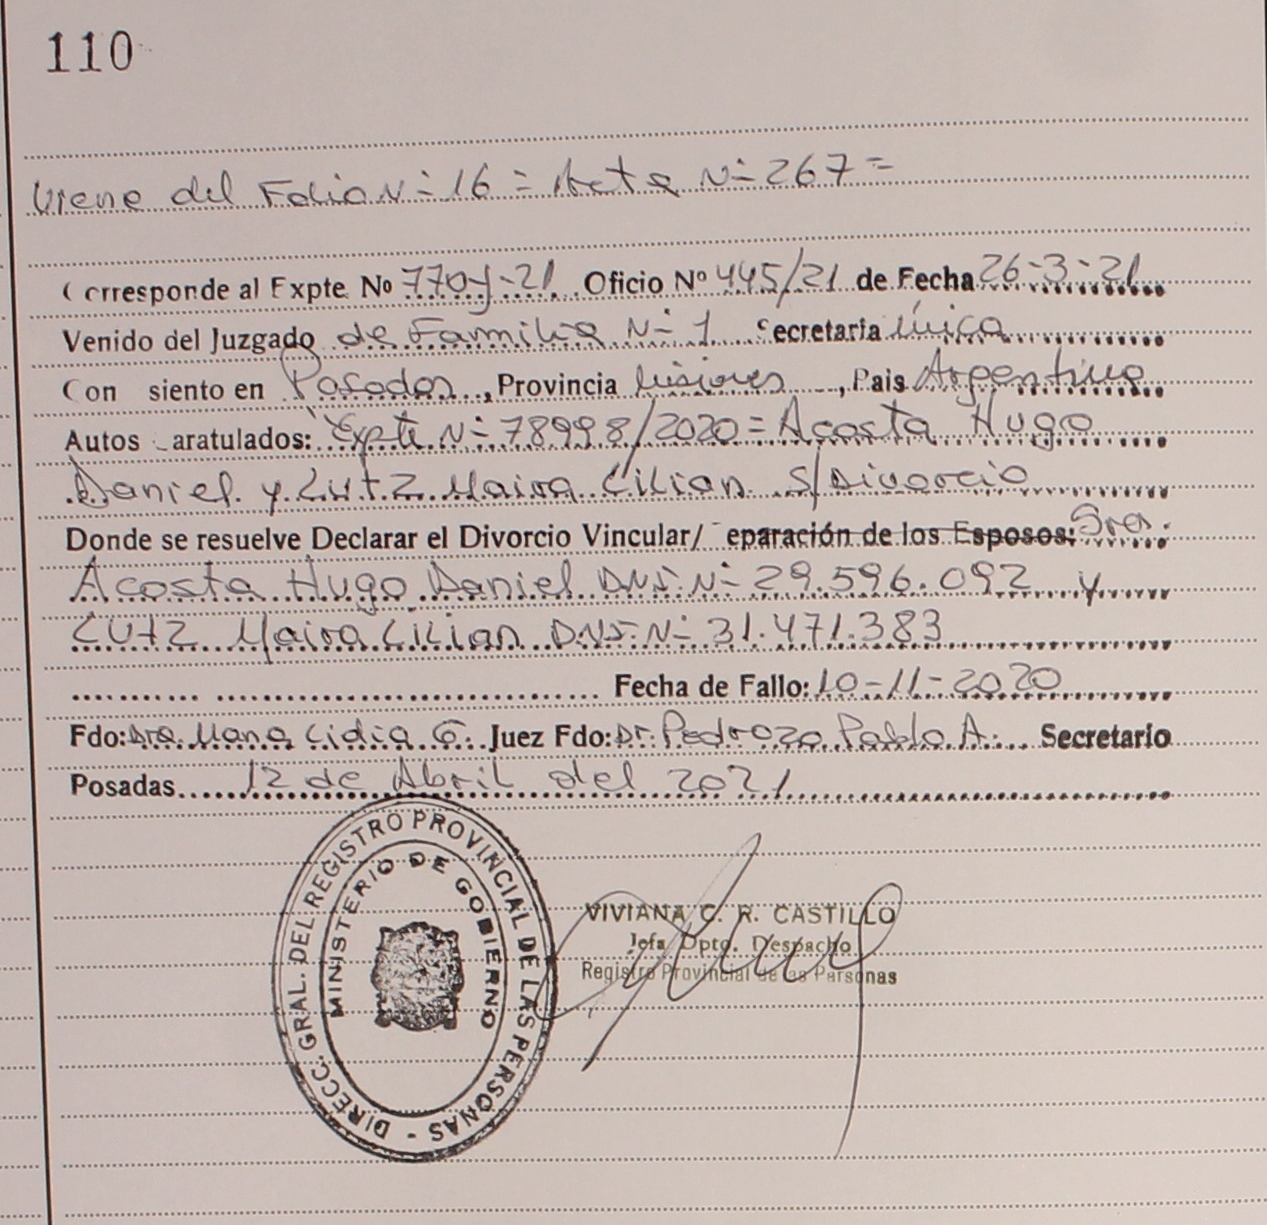 110
Viene del Folio N- 16 = Acta N- 267 =
Corresponde al Expte No 770-J-21 Oficio Nº 445/21 de Fecha 26-3-21
Venido del Juzgado de Familia N- 1 Secretaria única
Con siento en Posadas, Provincia Misiones, Pais Argentina
Autos aratulados: Expte N- 78998/2020 = Acosta Hugo
Daniel y Lutz Maira Lilian S/Divorcio
Donde se resuelve Declarar el Divorcio Vincular/ eparación de los Esposos:
Acosta Hugo Daniel D.N.I. N- 29.596.092 y
Lutz Maira Lilian D.N.I. N- 31.471.383
Fecha de Fallo: 10-11-2020
Fdo: Dra. Maria Lidia G. Juez Fdo: Dr. Pedrozo Pablo A. Secretario
Posadas 12 de Abril del 2021
DIRECC. GRAL. DEL REGISTRO PROVINCIAL DE LAS PERSONAS -
MINISTERIO DE GOBIERNO
VIVIANA C. R. CASTILLO
Jefa Dpto. Despacho
Registro Provincial de las Personas